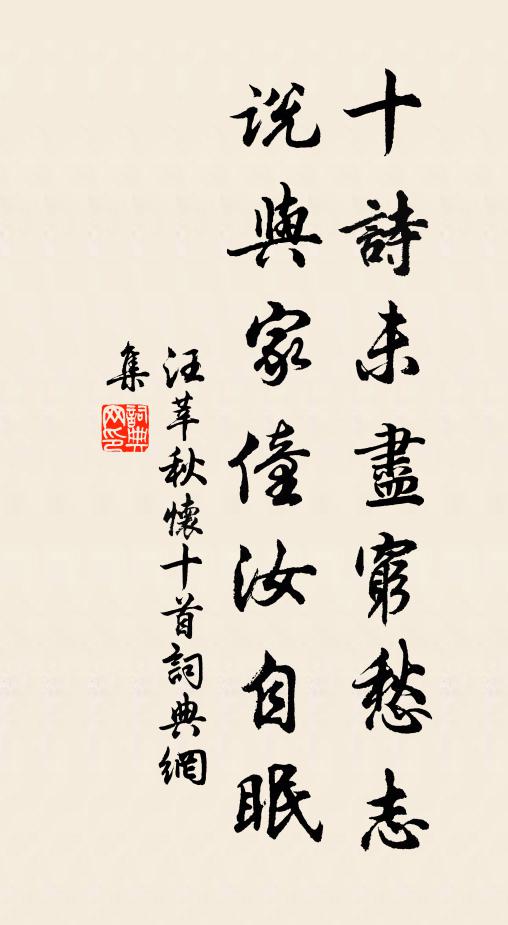 十詩未盡窮愁志
說與家僮汝自眠
汪莘秋懷十首詞典網
集
詞典
网印